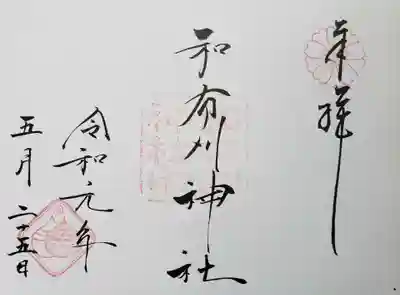 奉拝
和布刈神社
令和元年
五月二十五日